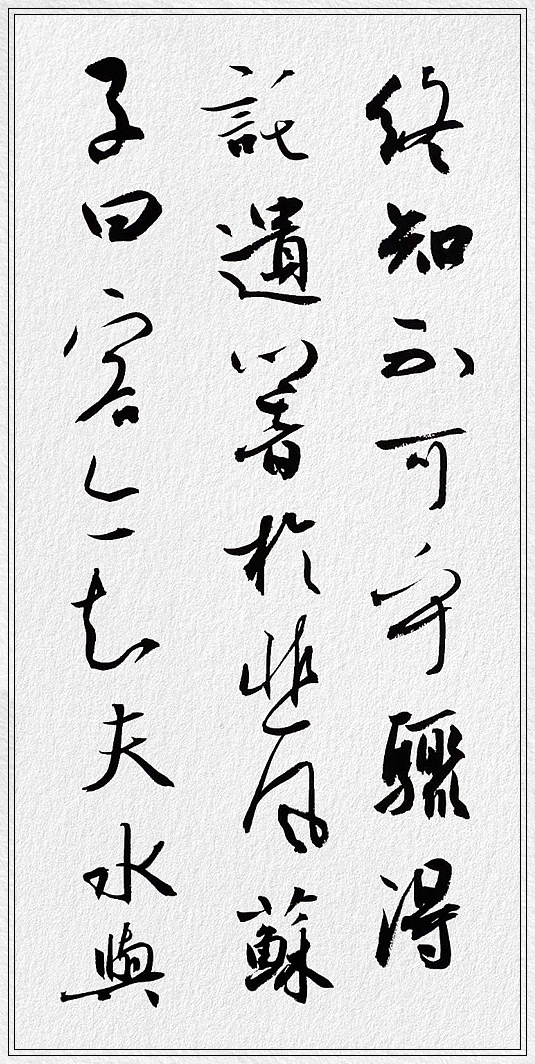 終知不可乎驟得
託遺響於悲風蘇
子曰客亦知夫水與